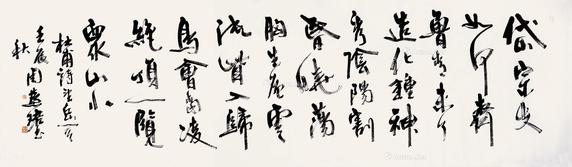 岱宗夫
如何齊
魯青未了
造化鍾神
秀陰陽割
昏曉蕩
胸生層雲
決眥入歸
鳥會當凌
絕頂一覽
衆山小
杜甫詩望岳
壬辰
秋